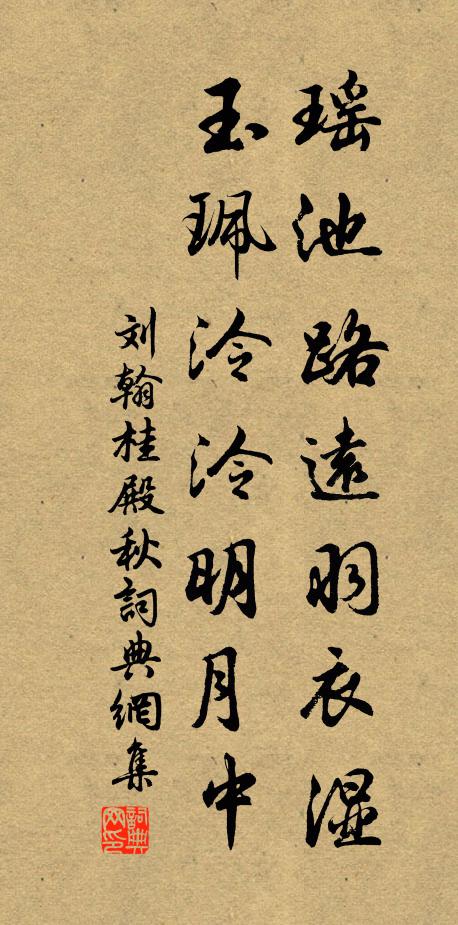 瑶池路遠羽衣湿
玉珮泠泠明月中
刘翰桂殿秋詞典網集
詞典网印